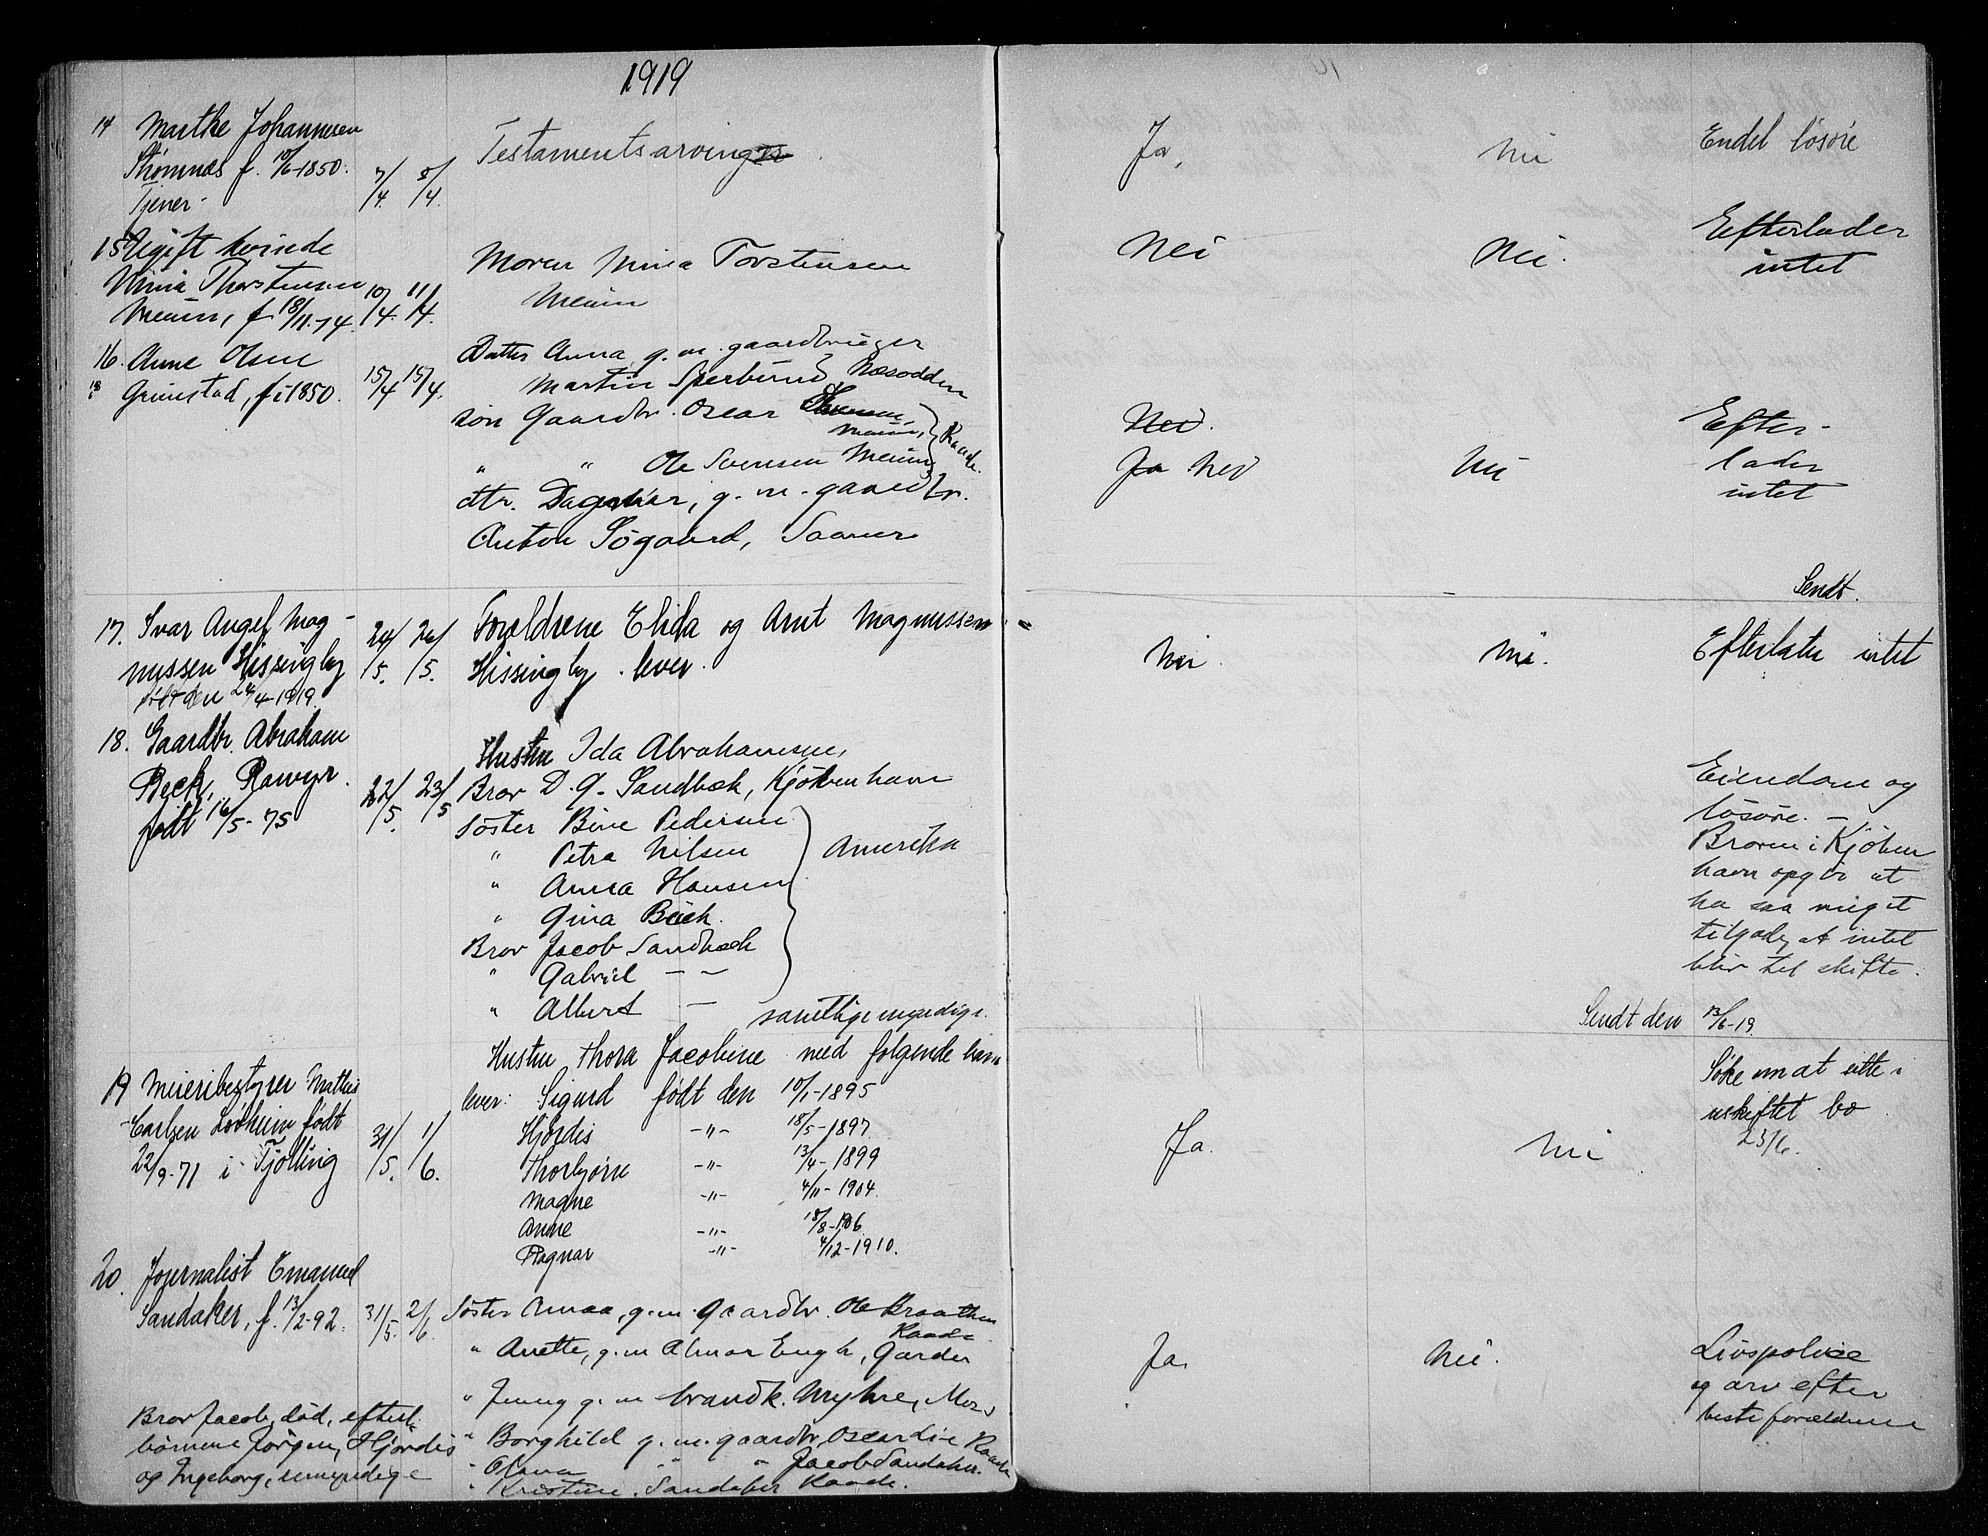 1919
14 Marthe Johannesen Testamentsarving Ja, Endel løsøre
Strømnæs f. 10/6-1850. 7/4 8/4
Tjener
15 Ugift kvinde Nei Nei. Efterlader
Mina Thorstensen 10/4 11/4 Moren Mina Torstensen intet
f 18/11-74
16. Anne Olsen Datter Anna g.m. gaardbruger
Grimstad, f. i 1850. 15/4 15/4 Martin Næsodden
søn Gaardbr. Oscar Nei. Efter-
" " Ole Svensen Raade. Ja Nei Nei lader
dtr. Dagmar, g.m. gaardbr. intet
Anton Søgaard, Saaner
Sendt.
17. Ivar Angel Mag- 24/5. 26/5. Forældrene Elida og Arnt Magnussen Nei. Nei. Efterlater intet
nussen Hissingby Hissingby lever.
født den 24/4-1919.
18. Gaardbr. Abraham Hustru Ida Abrahamsen,
Beck, 22/5. 23/5 Bror D. G. Sandbæk, Kjøbenhavn Eiendom og
født 16/5-75 Søster Bine Pedersen løsøre. -
" Petra Nilsen Amerika Broren i Kjøben
" Anna Hansen havn opgir at
" Gina Beck. ha saa meget
Bror Jacob Sandbæk tilgode, at intet
" Gabriel - - blir til skifte.
" Albert - samtlige myndige.
Sendt den 13/6-19.
19 Meieribestyrer Mathis Hustru Thora Jacobine med følgende barn Søke om at sitte i
Carlsen født 31/5. 1/6. lever: Sigurd født den 10/1-1895 uskiftet bo
22/9-71 i Tjølling Hjørdis -"- 18/5-1897. Ja. Nei 23/6.
Thorbjørn -"- 13/4-1899
Magne -"- 4/11-1904.
Anne -"- 18/8-1906
Ragnar -"- 4/12-1910.
20. Journalist Emanuel
Sandaker, f. 13/2-92. 31/5. 2/6. Søster Anna, g.m. gaardbr. Ole Braathen
Raade
" Anette, g.m Engh, Garder Ja. Nei. Livspolice
" Jenny g.m. Myhre, Moss og arv efter
Bror Jacob, død, efterl. " Borghild g.m. gaardbr. Oscar Lie Raade besteforældrene
børnene Jørgen, Hjørdis " Olava " " Jacob Sandaker.
og Ingeborg, umyndige " Kristine Sandaker Raade.